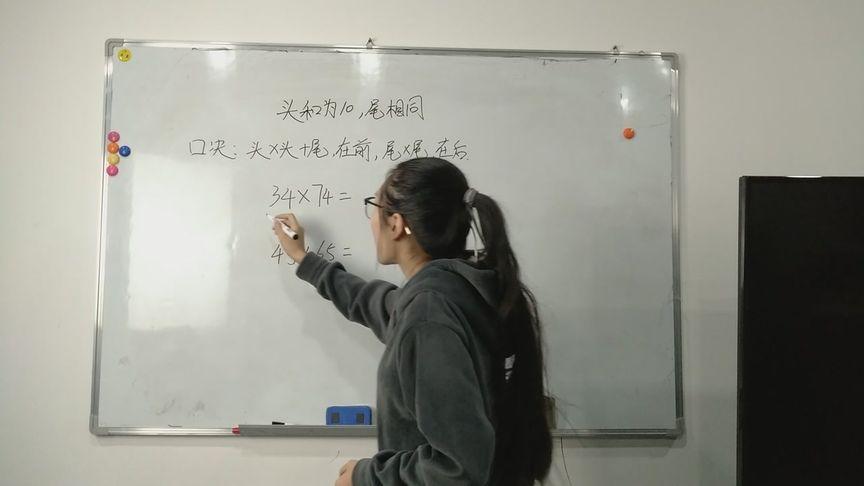 头和为10,尾相同
口决:头×头+尾,在前,尾×尾,在后.
34×74=
45×65=